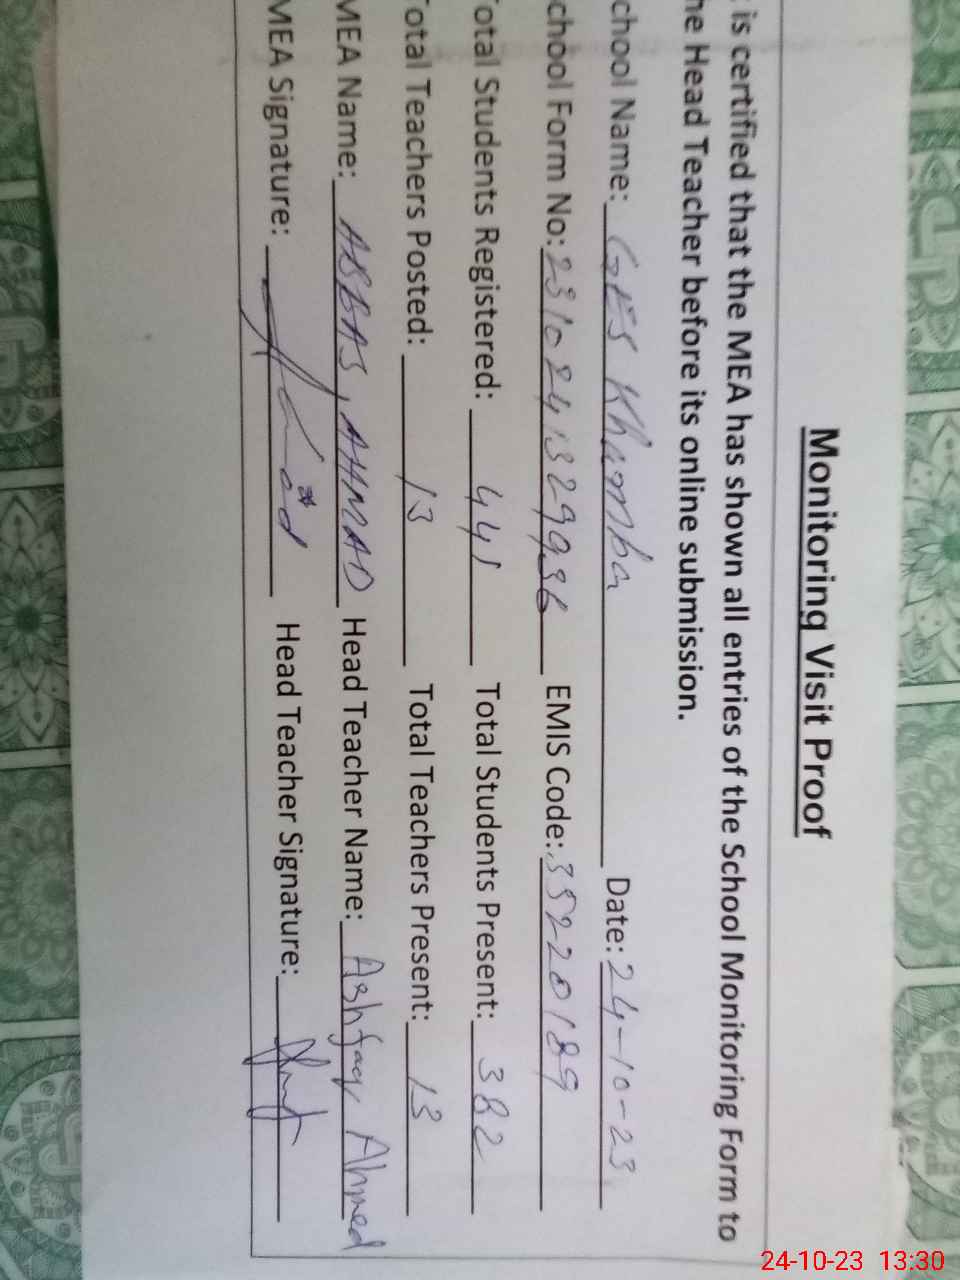 Monitoring Visit Proof
is certified that the MEA has shown all entries of the School Monitoring Form to
he Head Teacher before its online submission.
chool Name: GES Khamba Date: 24-10-23
chool Form No: 2310241329936 EMIS Code: 35220189
otal Students Registered: 441 Total Students Present: 382
otal Teachers Posted: 13 Total Teachers Present: 13
MEA Name: ABBAS, AHMAD Head Teacher Name: Ashfaq Ahmed
MEA Signature: Head Teacher Signature:
24-10-23 13:30